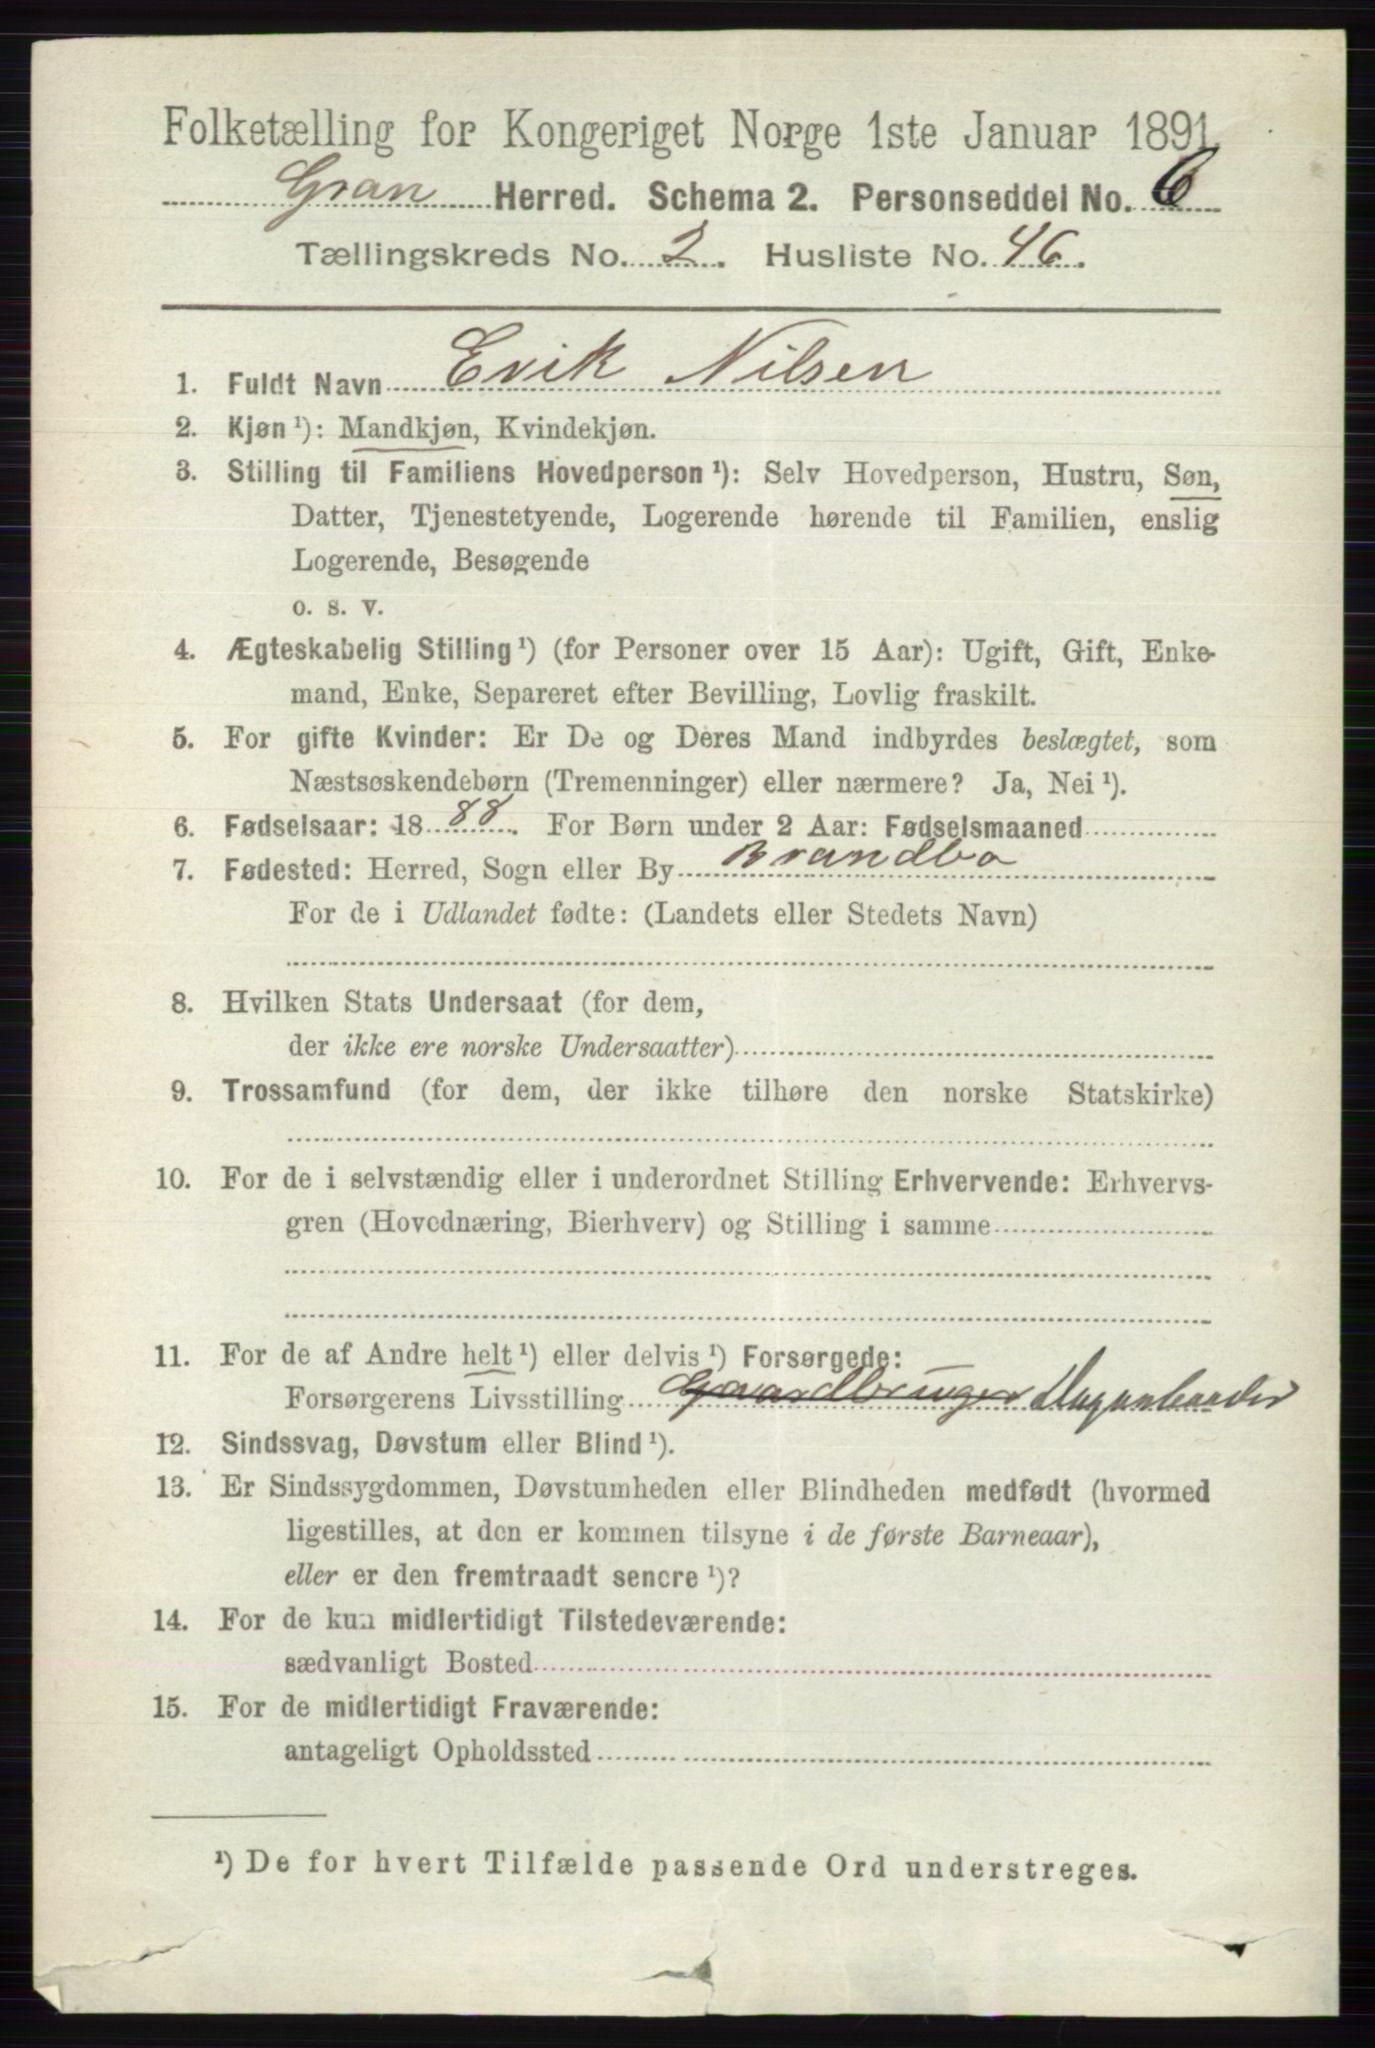 Folketælling for Kongeriget Norge 1ste Januar 1891.
Gran Herred. Schema 2. Personseddel No. 6
Tællingskreds No. 2. Husliste No. 46.
1. Fuldt Navn Erik Nilsen
2. Kjøn ¹): Mandkjøn, Kvindekjøn.
3. Stilling til Familiens Hovedperson ¹): Selv Hovedperson, Hustru, Søn,
Datter, Tjenestetyende, Logerende hørende til Familien, enslig
Logerende, Besøgende
o. s. v.
4. Ægteskabelig Stilling ¹) (for Personer over 15 Aar): Ugift, Gift, Enke-
mand, Enke, Separeret efter Bevilling, Lovlig fraskilt.
5. For gifte Kvinder: Er De og Deres Mand indbyrdes beslægtet, som
Næstsøskendebørn (Tremenninger) eller nærmere? Ja, Nei ¹).
6. Fødselsaar: 1888. For Børn under 2 Aar: Fødselsmaaned
7. Fødested: Herred, Sogn eller By Brandbo
For de i Udlandet fødte: (Landets eller Stedets Navn)
8. Hvilken Stats Undersaat (for dem,
der ikke ere norske Undersaatter)
9. Trossamfund (for dem, der ikke tilhøre den norske Statskirke)
10. For de i selvstændig eller i underordnet Stilling Erhvervende: Erhvervs-
gren (Hovednæring, Bierhverv) og Stilling i samme
11. For de af Andre helt ¹) eller delvis ¹) Forsørgede:
Forsørgerens Livsstilling Gaardbruger
12. Sindssvag, Døvstum eller Blind ¹).
13. Er Sindssygdommen, Døvstumheden eller Blindheden medfødt (hvormed
ligestilles, at den er kommen tilsyne i de første Barneaar),
eller er den fremtraadt senere ¹)?
14. For de kun midlertidigt Tilstedeværende:
sædvanligt Bosted
15. For de midlertidigt Fraværende:
antageligt Opholdssted
¹) De for hvert Tilfælde passende Ord understreges.